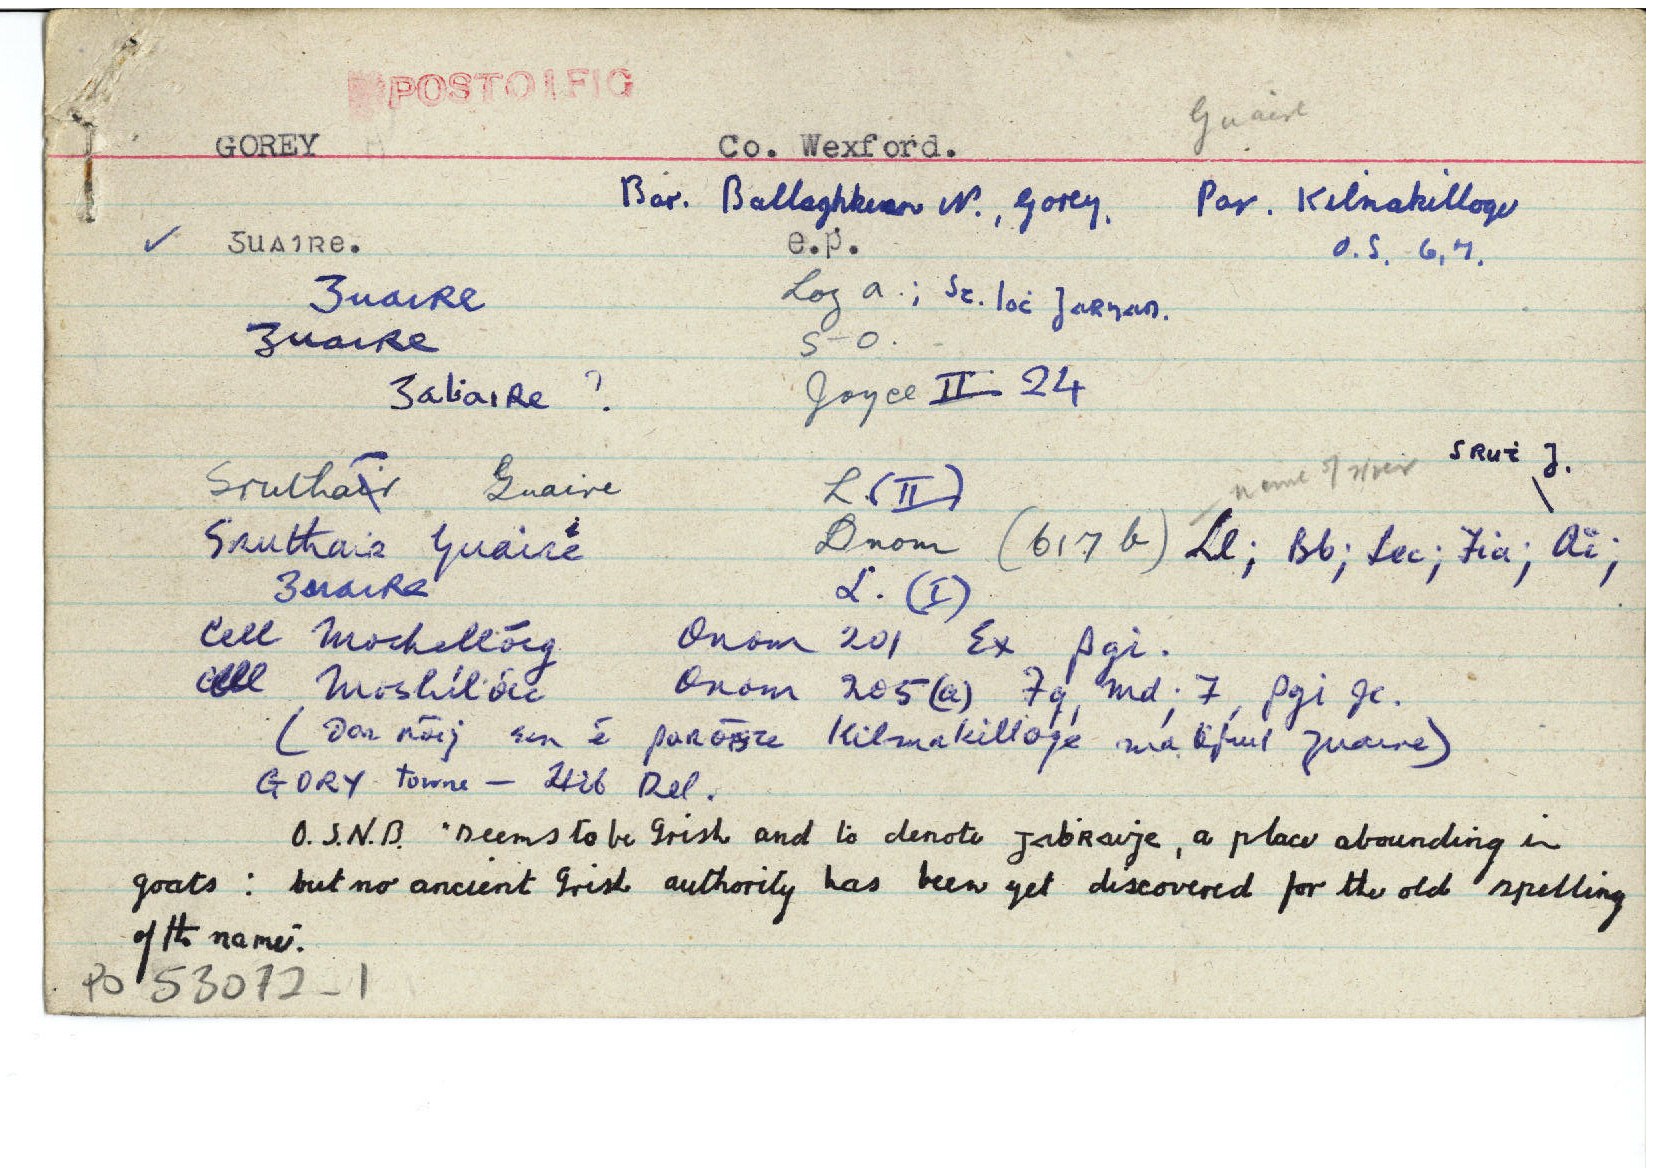 POSTOIFIG
Guaire
GOREY Co. Wexford.
Bar. Ballaghkeen N., Gorey. Par. Kilmakilloge
✓ ᵹuaire. e.p. O.S. 6, 7.
ᵹuaire Log a.; Sc. loċ ᵹarman.
ᵹuaire S-O.
ᵹaḃaire ? Joyce II 24
name of river Sruṫ ᵹ.
Sruthair Guaire L. (II)
Sruthair Guairé Dnom (617 b) Ll; Bb; Lec; Fia; Ai;
ᵹuaire L. (I)
Cell Mochellóig Onom 201 Ex pgi.
Cell Moshílóic Onom 205 (a) Fg, Md; F, pgi Jc.
(Dar nóiᵹ sin é paróiste Kilmakilloge ina ḃfuil ᵹuaire)
GORY towne — Hib Del.
O.S.N.B. "seems to be Irish and to denote ᵹaḃraiᵹe, a place abounding in
goats : but no ancient Irish authority has been yet discovered for the old spelling
of the name".
PO 53072-1